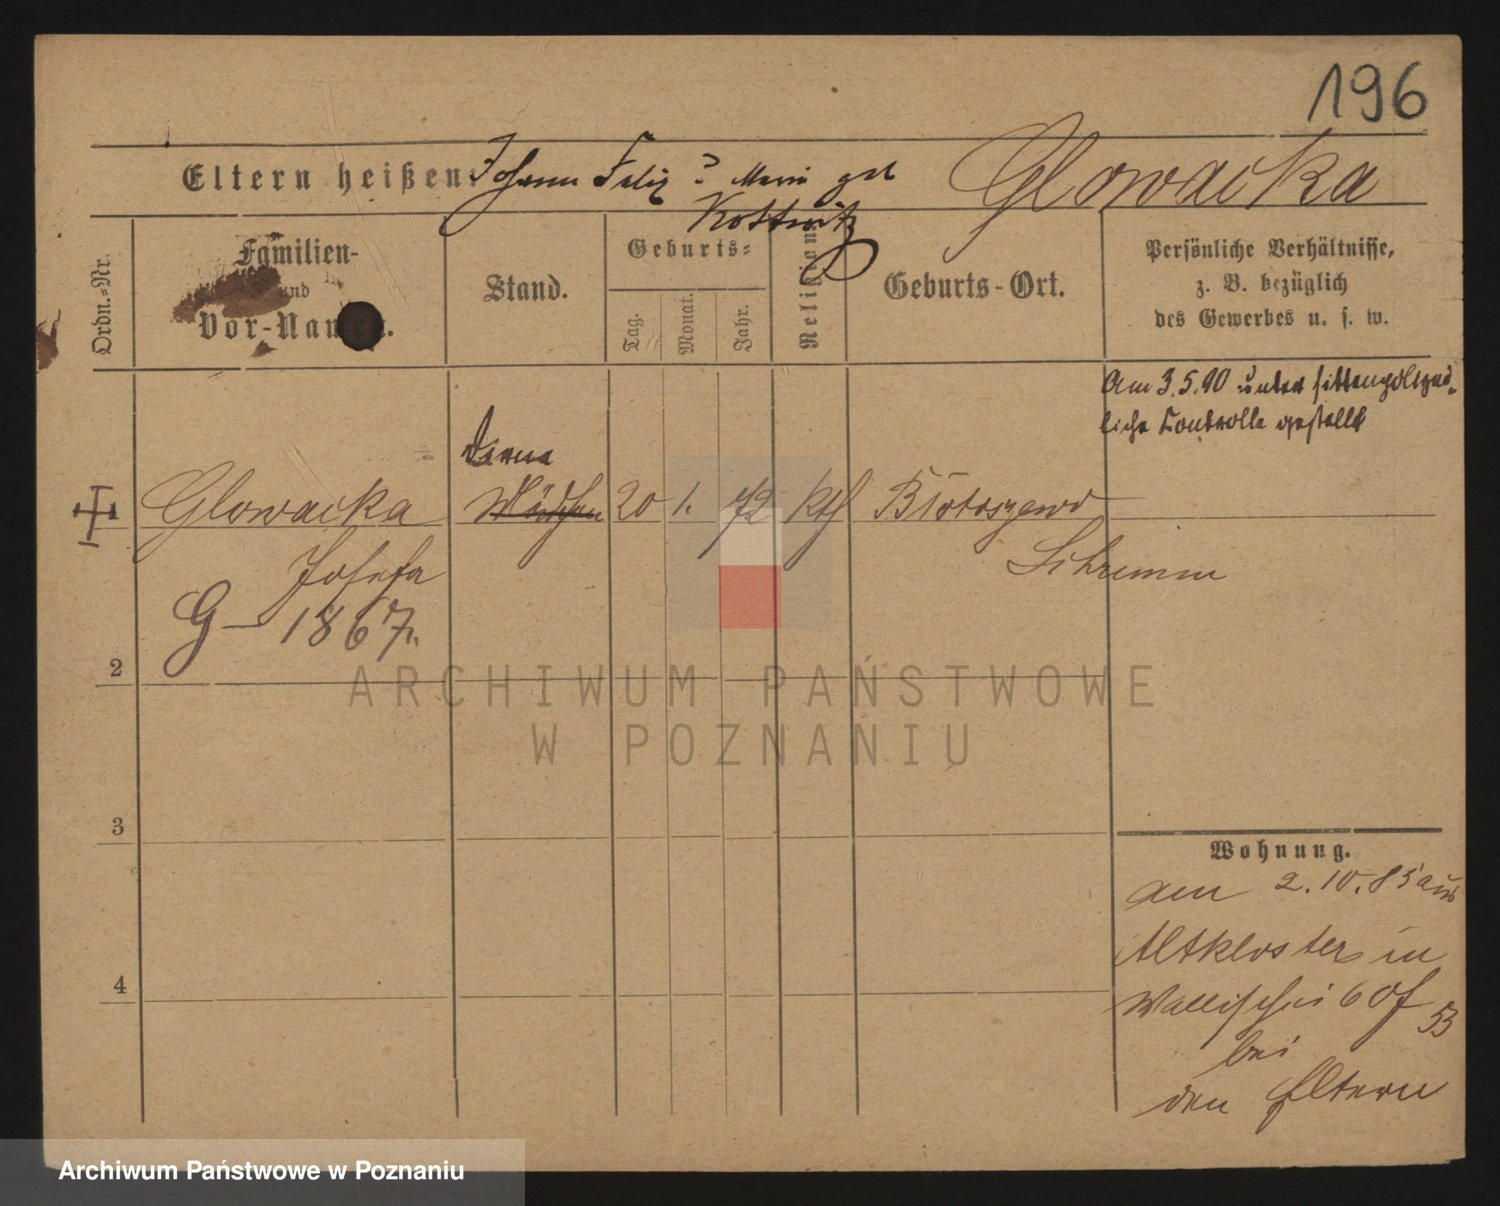 196
Eltern heißen: Johann Felix ? Marie geb
Kottwitz
Glowacka
Ordn.-Nr.
Familien-
und
Vor-Namen.
Stand.
Geburts-
Tag.
Monat.
Jahr.
Religion
Geburts-Ort.
Persönliche Verhältnisse,
z. B. bezüglich
des Gewerbes u. s. w.
Am 3.5.90 unter sittenpolizei-
liche Controlle gestellt
Dirne
1 Glowacka Mädchen 20 1. 72 kth
Schrimm
Josefa
G – 1867.
2
3
4
Wohnung.
am 2.10.85 aus
Altkloster in
Wallischei 60f
53
bei
den Eltern
ARCHIWUM PAŃSTWOWE
W POZNANIU
Archiwum Państwowe w Poznaniu